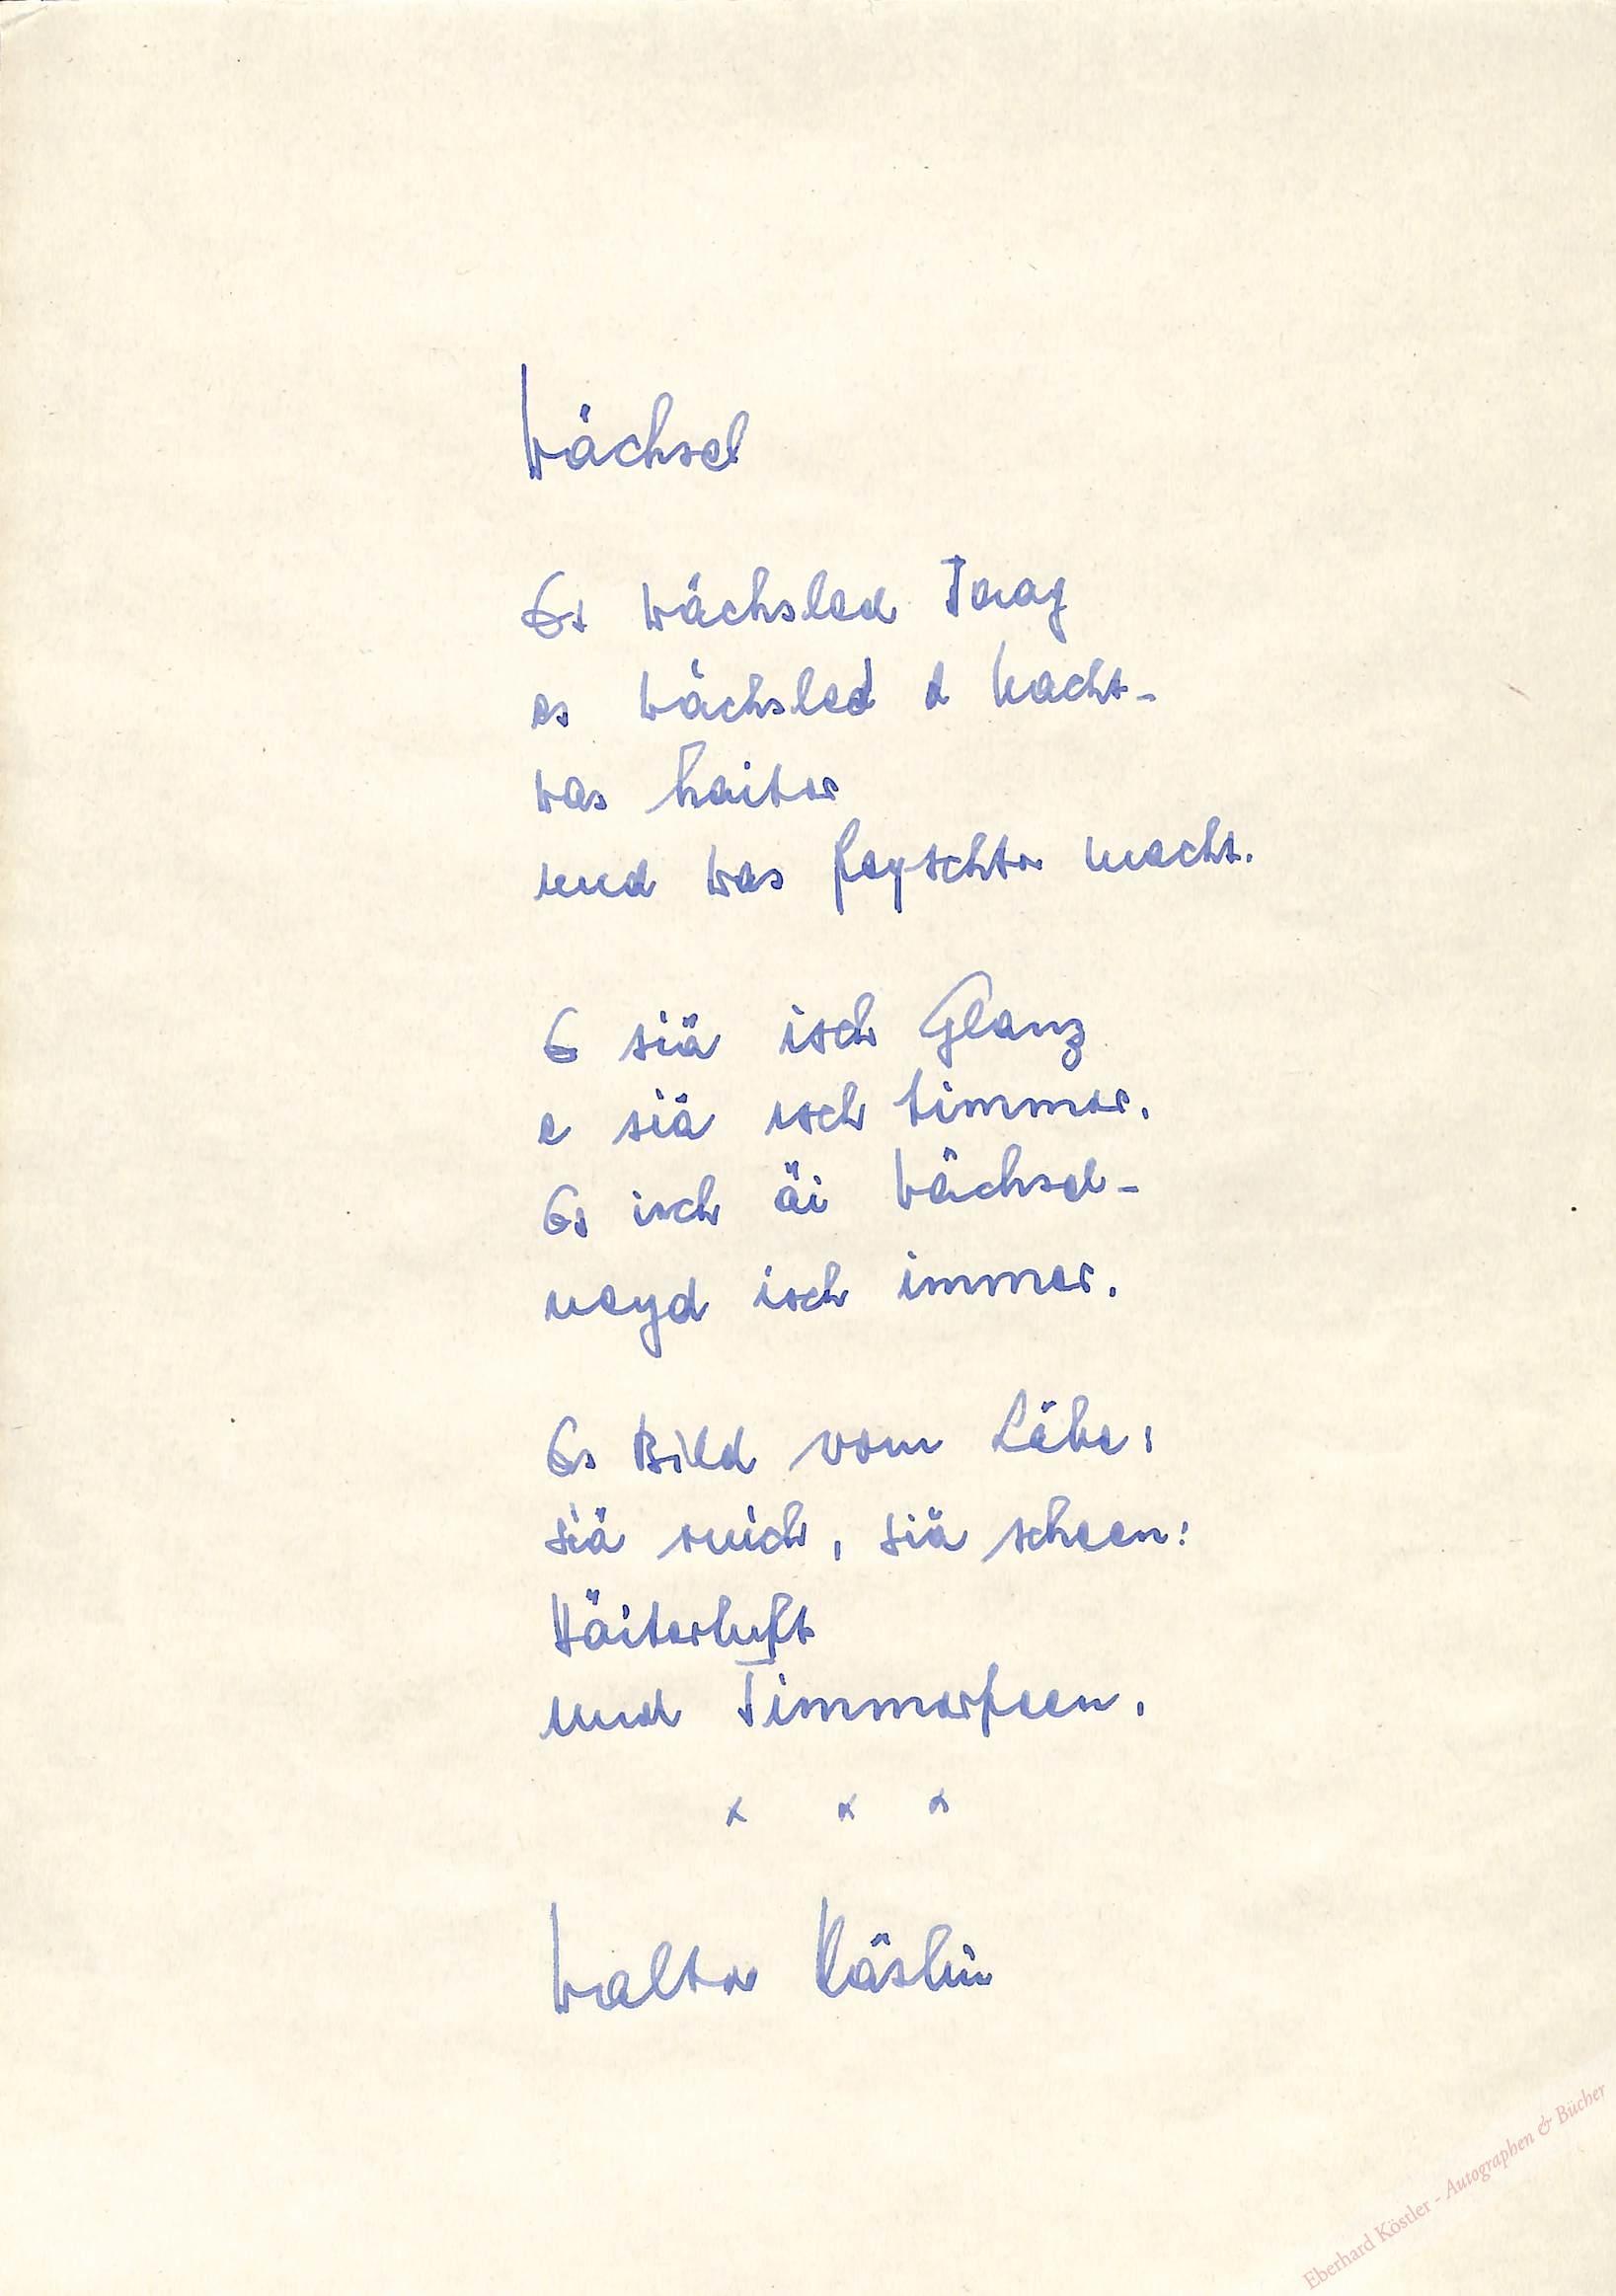 Wächsel
Es wächsled Taag
es wächsled d Nacht-
was haiter
und was feyschter macht.
E siä isch Glanz
e siä isch timmer.
Es isch äi Wächsel-
neyd isch immer.
Es Bild vom Läbe:
siä ruich, siä scheen:
Häiterluft
und Timmerfeen.
x x x
Walter Käslin
Eberhard Köstler - Autographen & Bücher